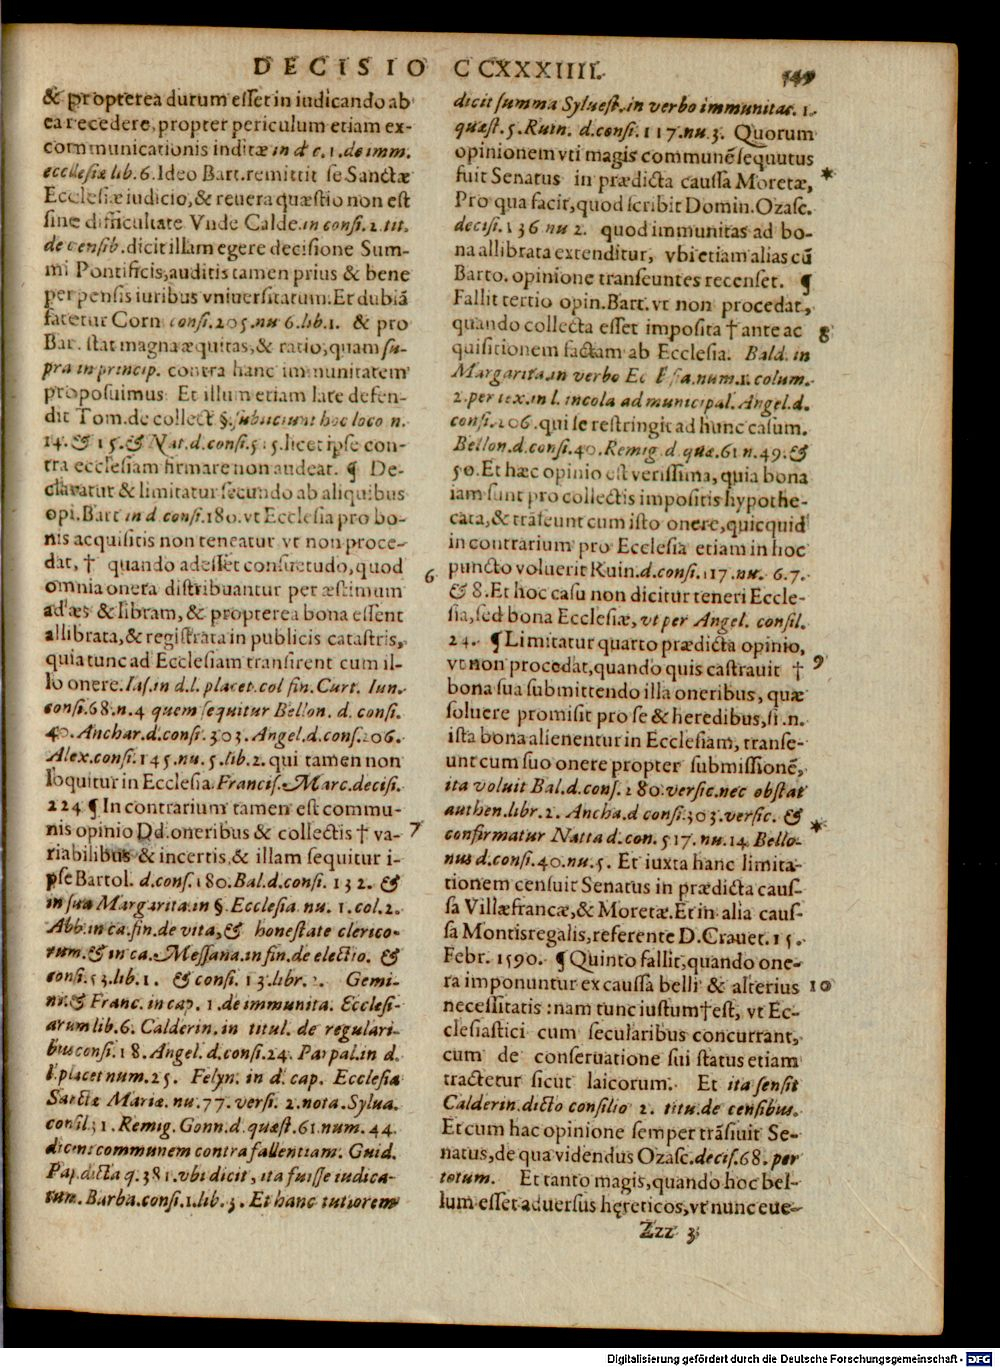 DECISIO CCXXXIIII. 549
& propterea durum esset in iudicando ab
ea recedere, propter periculum etiam ex-
communicationis indictæ in d c. 1. de imm.
ecclesiæ lib. 6. Ideo Bart. remittit se Sanctæ
Ecclesiæ iudicio, & reuera quæstio non est
sine difficultate Vnde Calde. in consi. 2. tit.
de censib. dicit illam egere decisione Sum-
mi Pontificis, auditis tamen prius & bene
perpensis iuribus vniuersitatum. Et dubiā
fatetur Corn consi. 205. nu 6. lib. 1. & pro
Bar. stat magna æquitas, & ratio, quam su-
pra in princip. contra hanc immunitatem
proposuimus Et illum etiam late defen-
dit Tom. de collect §. subiiciunt hoc loco n.
14. & 15. & Nat. d. consi. 515. licet ipse con-
tra ecclesiam firmare non audeat. ¶ De-
claratur & limitatur secundo ab aliquibus
opi. Bart in d. consi. 180. vt Ecclesia pro bo-
nis acquisitis non teneatur vt non proce-
dat, † quando adesset consuetudo, quod
omnia onera distribuantur per æstimum
ad æs & libram, & propterea bona essent
allibrata, & registrata in publicis catastris,
quia tunc ad Ecclesiam transirent cum il-
lo onere. Ias. in d. l. placet. col fin. Curt. Iun.
consi. 68. n. 4 quem sequitur Bellon. d. consi.
40. Anchar. d. consi. 303. Angel. d. cons. 206.
Alex. consi. 145. nu. 5. lib. 2. qui tamen non
loquitur in Ecclesia. Francis. Marc. decisi.
224 ¶ In contrarium tamen est commu-
nis opinio Dd. oneribus & collectis † va-
riabilibus & incertis, & illam sequitur i-
pse Bartol. d. cons. 180. Bal. d. consi. 132. &
in sua Margarita. in §. Ecclesia nu. 1. col. 2.
Abb. in ca. fin. de vita, & honestate clerico-
rum. & in ca. Messana. in fin. de electio. &
consi. 53. lib. 1. & consi. 13. libr. 2. Gemi-
ni. & Franc. in cap. 1. de immunita. Ecclesi-
arum lib. 6. Calderin. in titul. de regulari-
bus consi. 18. Angel. d. consi. 24. Parpal. in d.
l. placet num. 25. Felyn. in d. cap. Ecclesia
Sanctæ Mariæ. nu. 77. versi. 2. nota. Sylua.
consil. 31. Remig. Gonn. d. quæst. 61. num. 44.
dicens communem contra fallentiam. Guid.
Pap. dicta q. 381. vbi dicit, ita fuisse iudica-
tum. Barba. consi. 1. lib. 3. Et hanc tutiorem
6
7
dicit summa Syluest. in verbo immunitas. 1.
quæst. 5. Ruin. d. consi. 117. nu. 3. Quorum
opinionem vti magis communē sequutus
fuit Senatus in prædicta caussa Moretæ, *
Pro qua facit, quod scribit Domin. Ozasc.
decisi. 136 nu 2. quod immunitas ad bo-
na allibrata extenditur, vbi etiam alias cū
Barto. opinione transeuntes recenset. ¶
Fallit tertio opin. Bart. vt non procedat,
quando collecta esset imposita † ante ac 8
quisitionem factam ab Ecclesia. Bald. in
Margarita. in verbo Ecclesia. num. 1. colum.
2. per tex. in l. incola ad municipal. Angel. d.
consi. 206. qui se restringit ad hunc casum.
Bellon. d. consi. 40. Remig. d. quæ. 61 n. 49. &
50. Et hæc opinio est verissima, quia bona
iam sunt pro collectis impositis hypothe-
cata, & trāseunt cum isto onere, quicquid
in contrarium pro Ecclesia etiam in hoc
puncto voluerit Ruin. d. consi. 117. nu. 6. 7.
& 8. Et hoc casu non dicitur teneri Eccle-
sia, sed bona Ecclesiæ, vt per Angel. consil.
24. ¶ Limitatur quarto prædicta opinio,
vt non procedat, quando quis castrauit † 9
bona sua submittendo illa oneribus, quæ
soluere promisit pro se & heredibus, si .n.
ista bona alienentur in Ecclesiam, transe-
unt cum suo onere propter submissionē,
ita voluit Bal. d. cons. 280. versic. nec obstat
authen. libr. 2. Ancha. d consi. 303. versic. &
confirmatur Natta d. con. 517. nu. 14. Bello- *
nus d. consi. 40. nu. 5. Et iuxta hanc limita-
tionem censuit Senatus in prædicta caus-
sa Villæfrancæ, & Moretæ. Et in alia caus-
sa Montisregalis, referente D. Crauet. 15.
Febr. 1590. ¶ Quinto fallit, quando one-
ra imponuntur ex caussa belli & alterius 10
necessitatis: nam tunc iustum † est, vt Ec-
clesiastici cum secularibus concurrant,
cum de conseruatione sui status etiam
tractetur sicut laicorum. Et ita sensit
Calderin. dicto consilio 2. titu. de censibus.
Et cum hac opinione semper trāsiuit Se-
natus, de qua videndus Ozasc. decis. 68. per
totum. Et tanto magis, quando hoc bel-
lum esset aduersus hęreticos, vt nunc eue-
Zzz 3
Digitalisierung gefördert durch die Deutsche Forschungsgemeinschaft - DFG